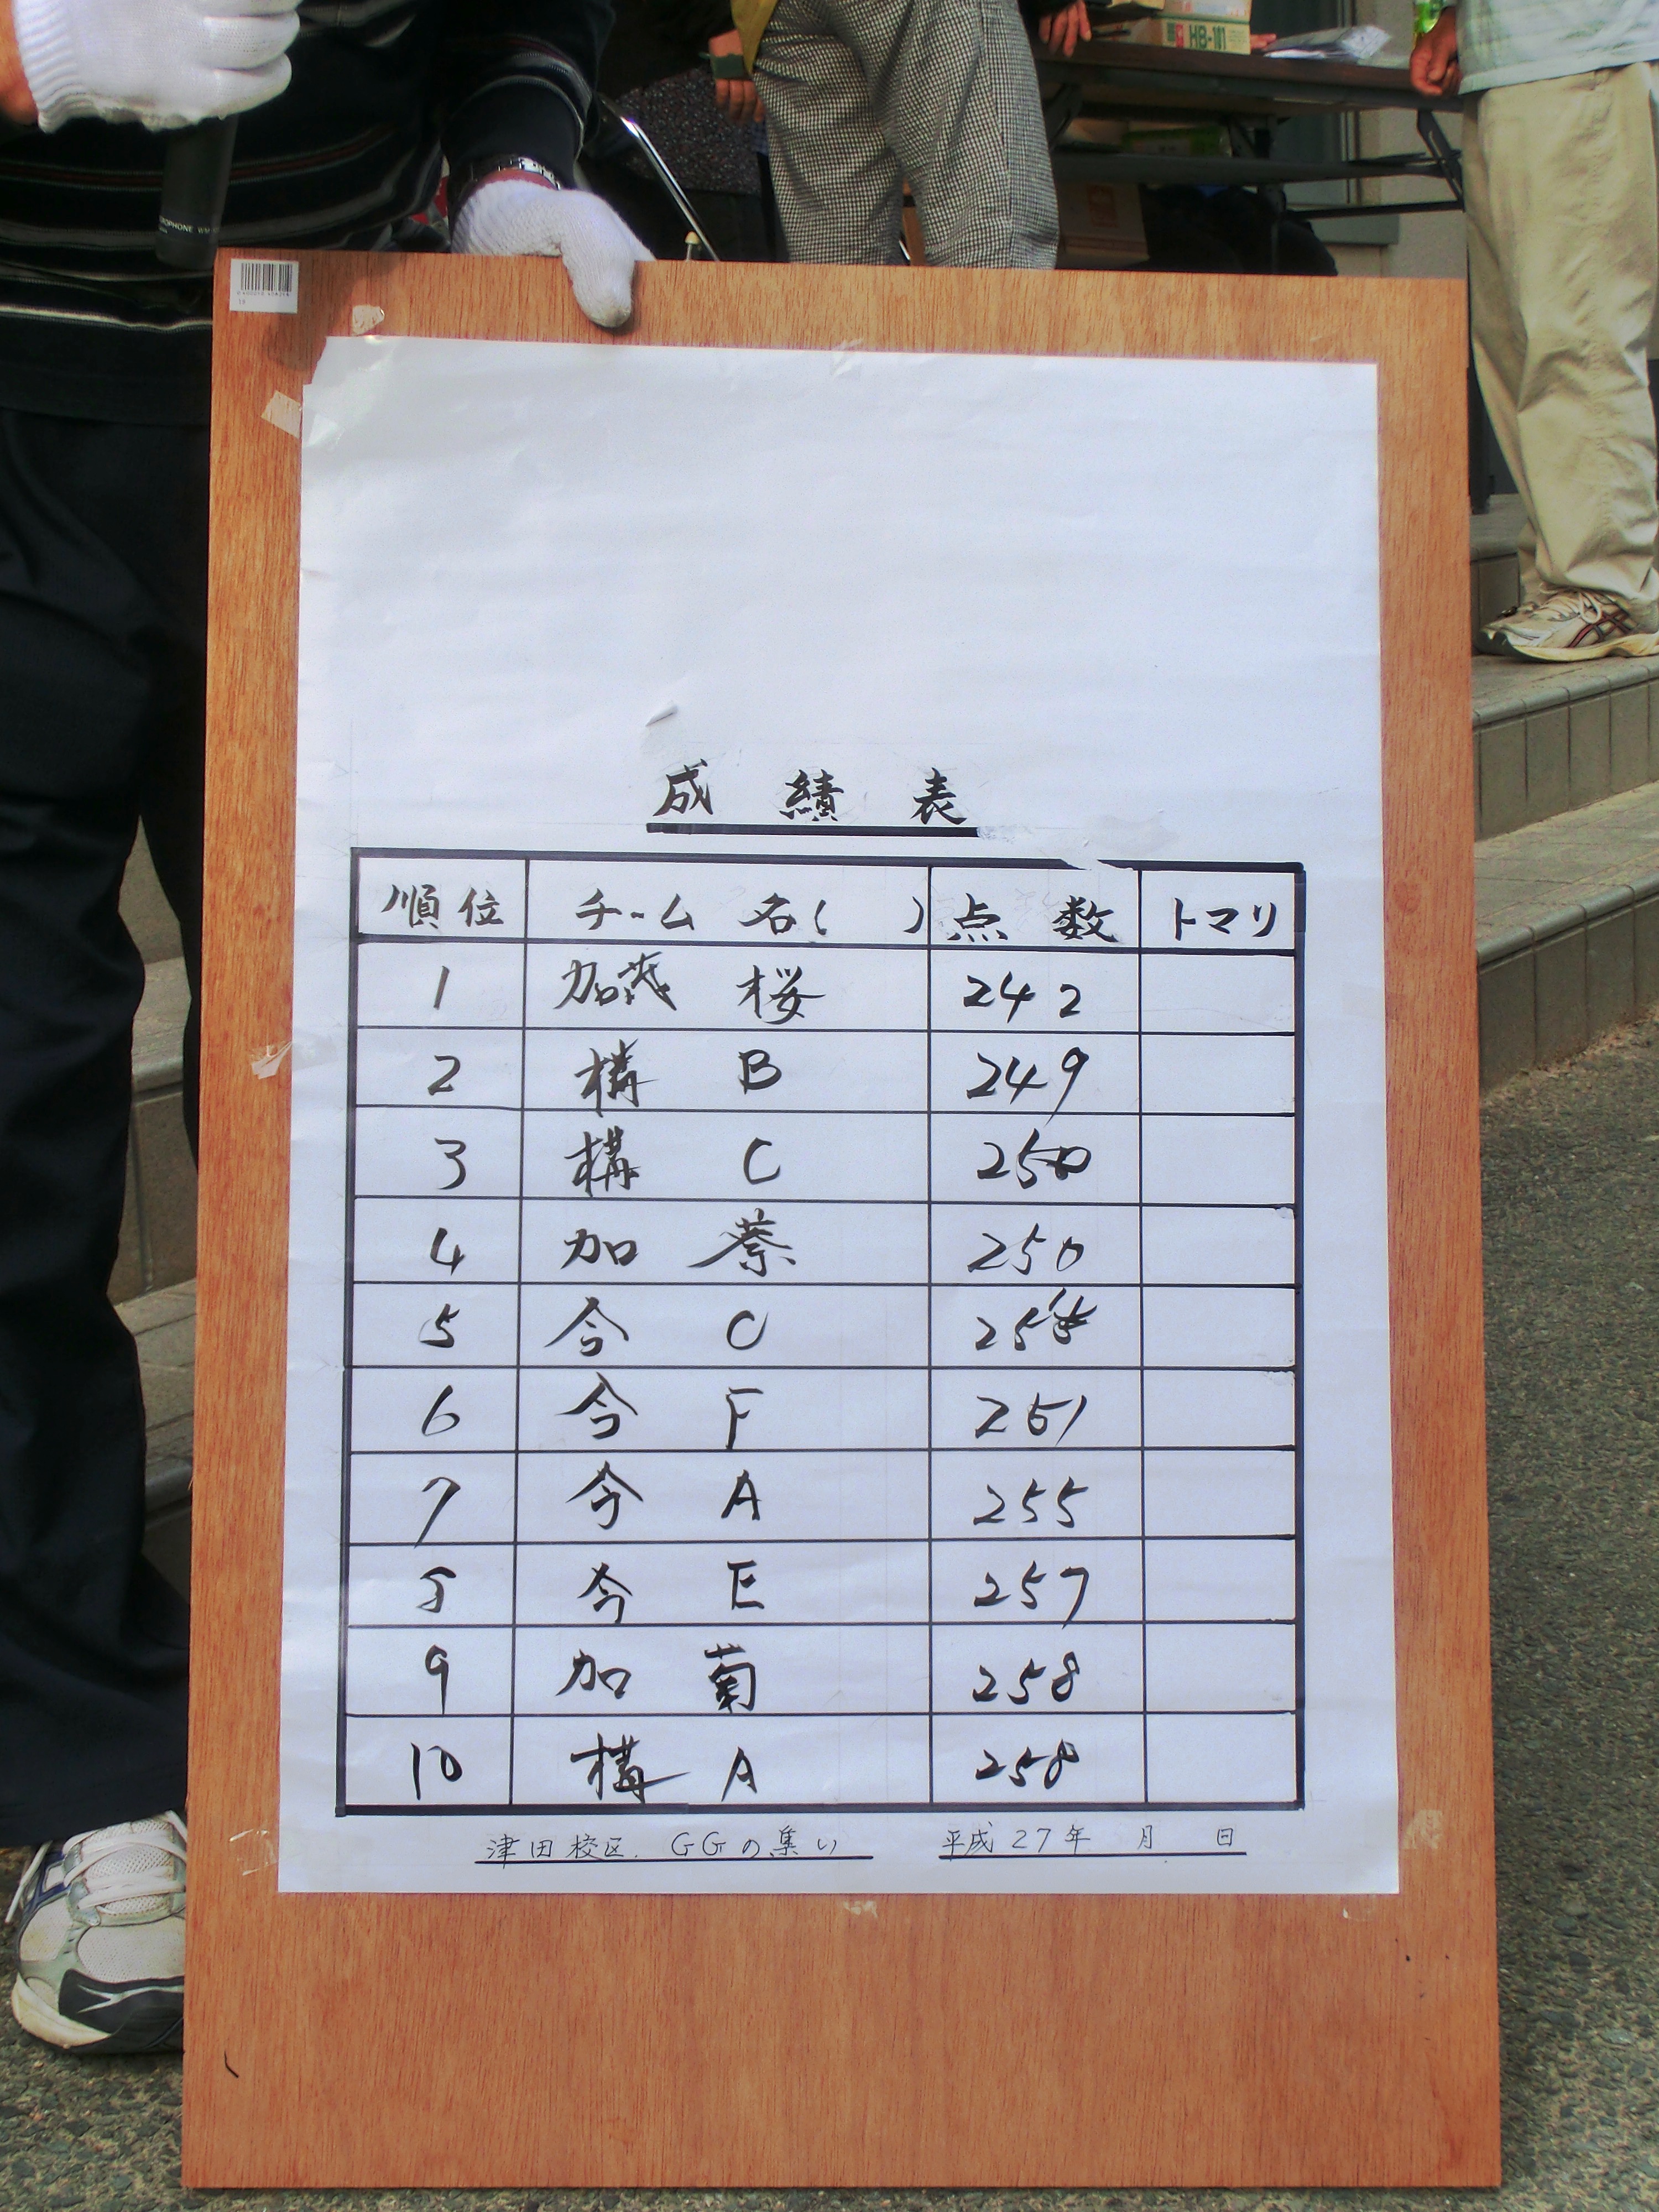 HB-101
成績表
順位 チーム名( ) 点数 トマリ
1 加茂 桜 242
2 構 B 249
3 構 C 250
4 加 葵 250
5 今 C
6 今 F 251
7 今 A 255
8 今 E 257
9 加 菊 258
10 構 A 258
津田校区. GGの集い 平成27年 月 日